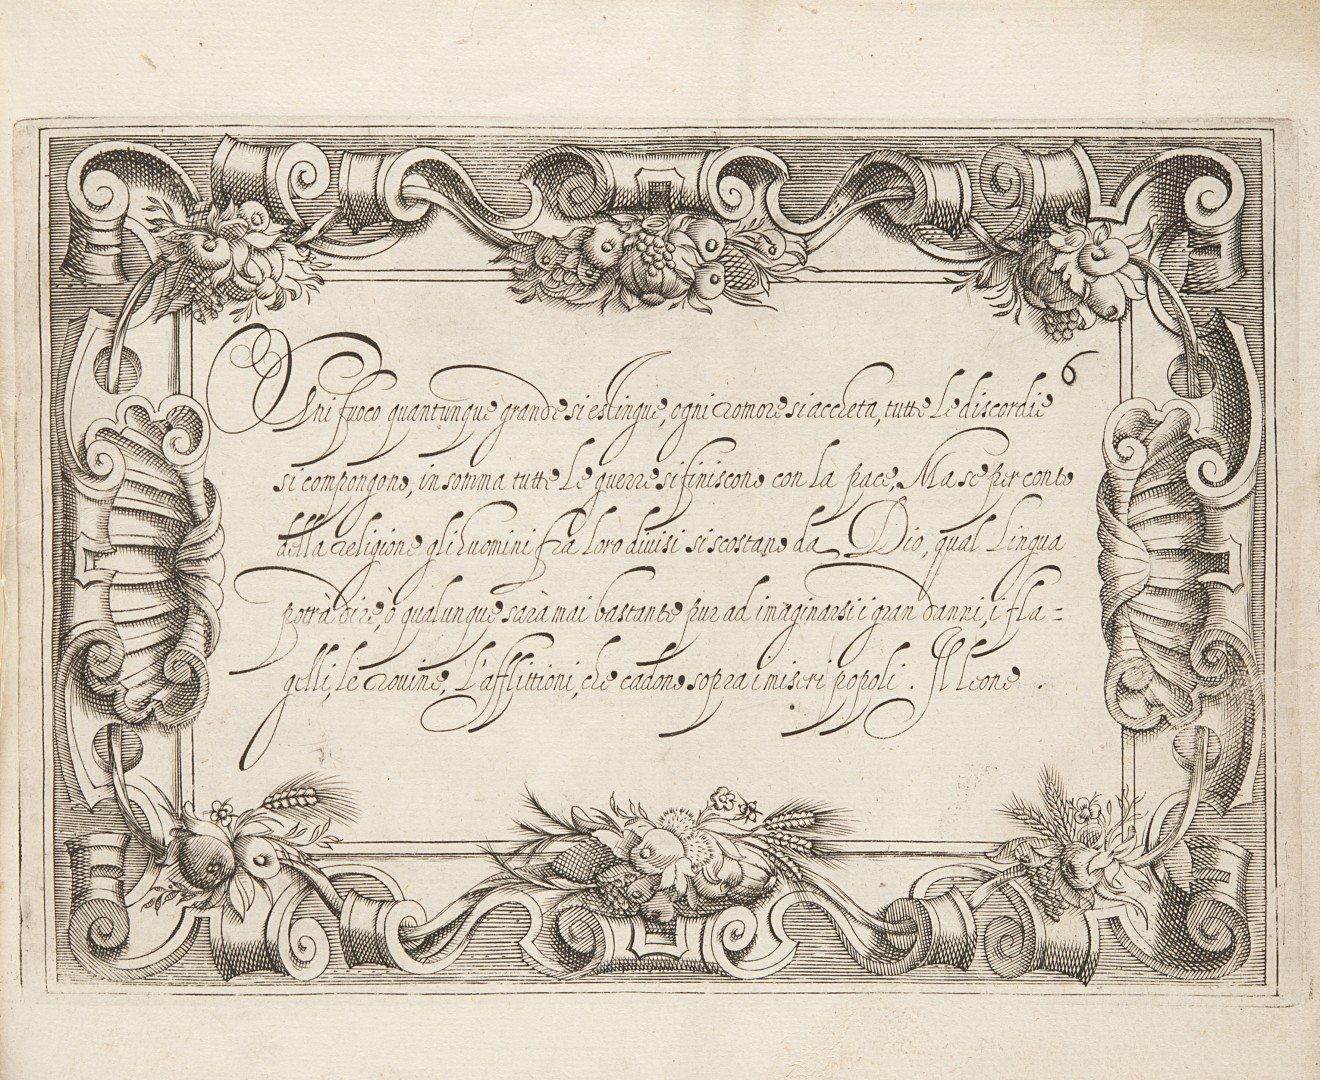 Ogni fuoco quantunque grande si estingue, ogni romore si accheta, tutte le discordie
si compongono, in somma tutte le guerre si finiscono con la pace, Ma se per conto
della religione gli huomini fra loro divisi si scostano da Dio, qual lingua
potrà dire, ò qualunque sarà mai bastante pur ad imaginarsi i gran danni, i fla=
gelli, le rovine, l'afflittioni, che cadono sopra i miseri popoli. Il Leone.
6